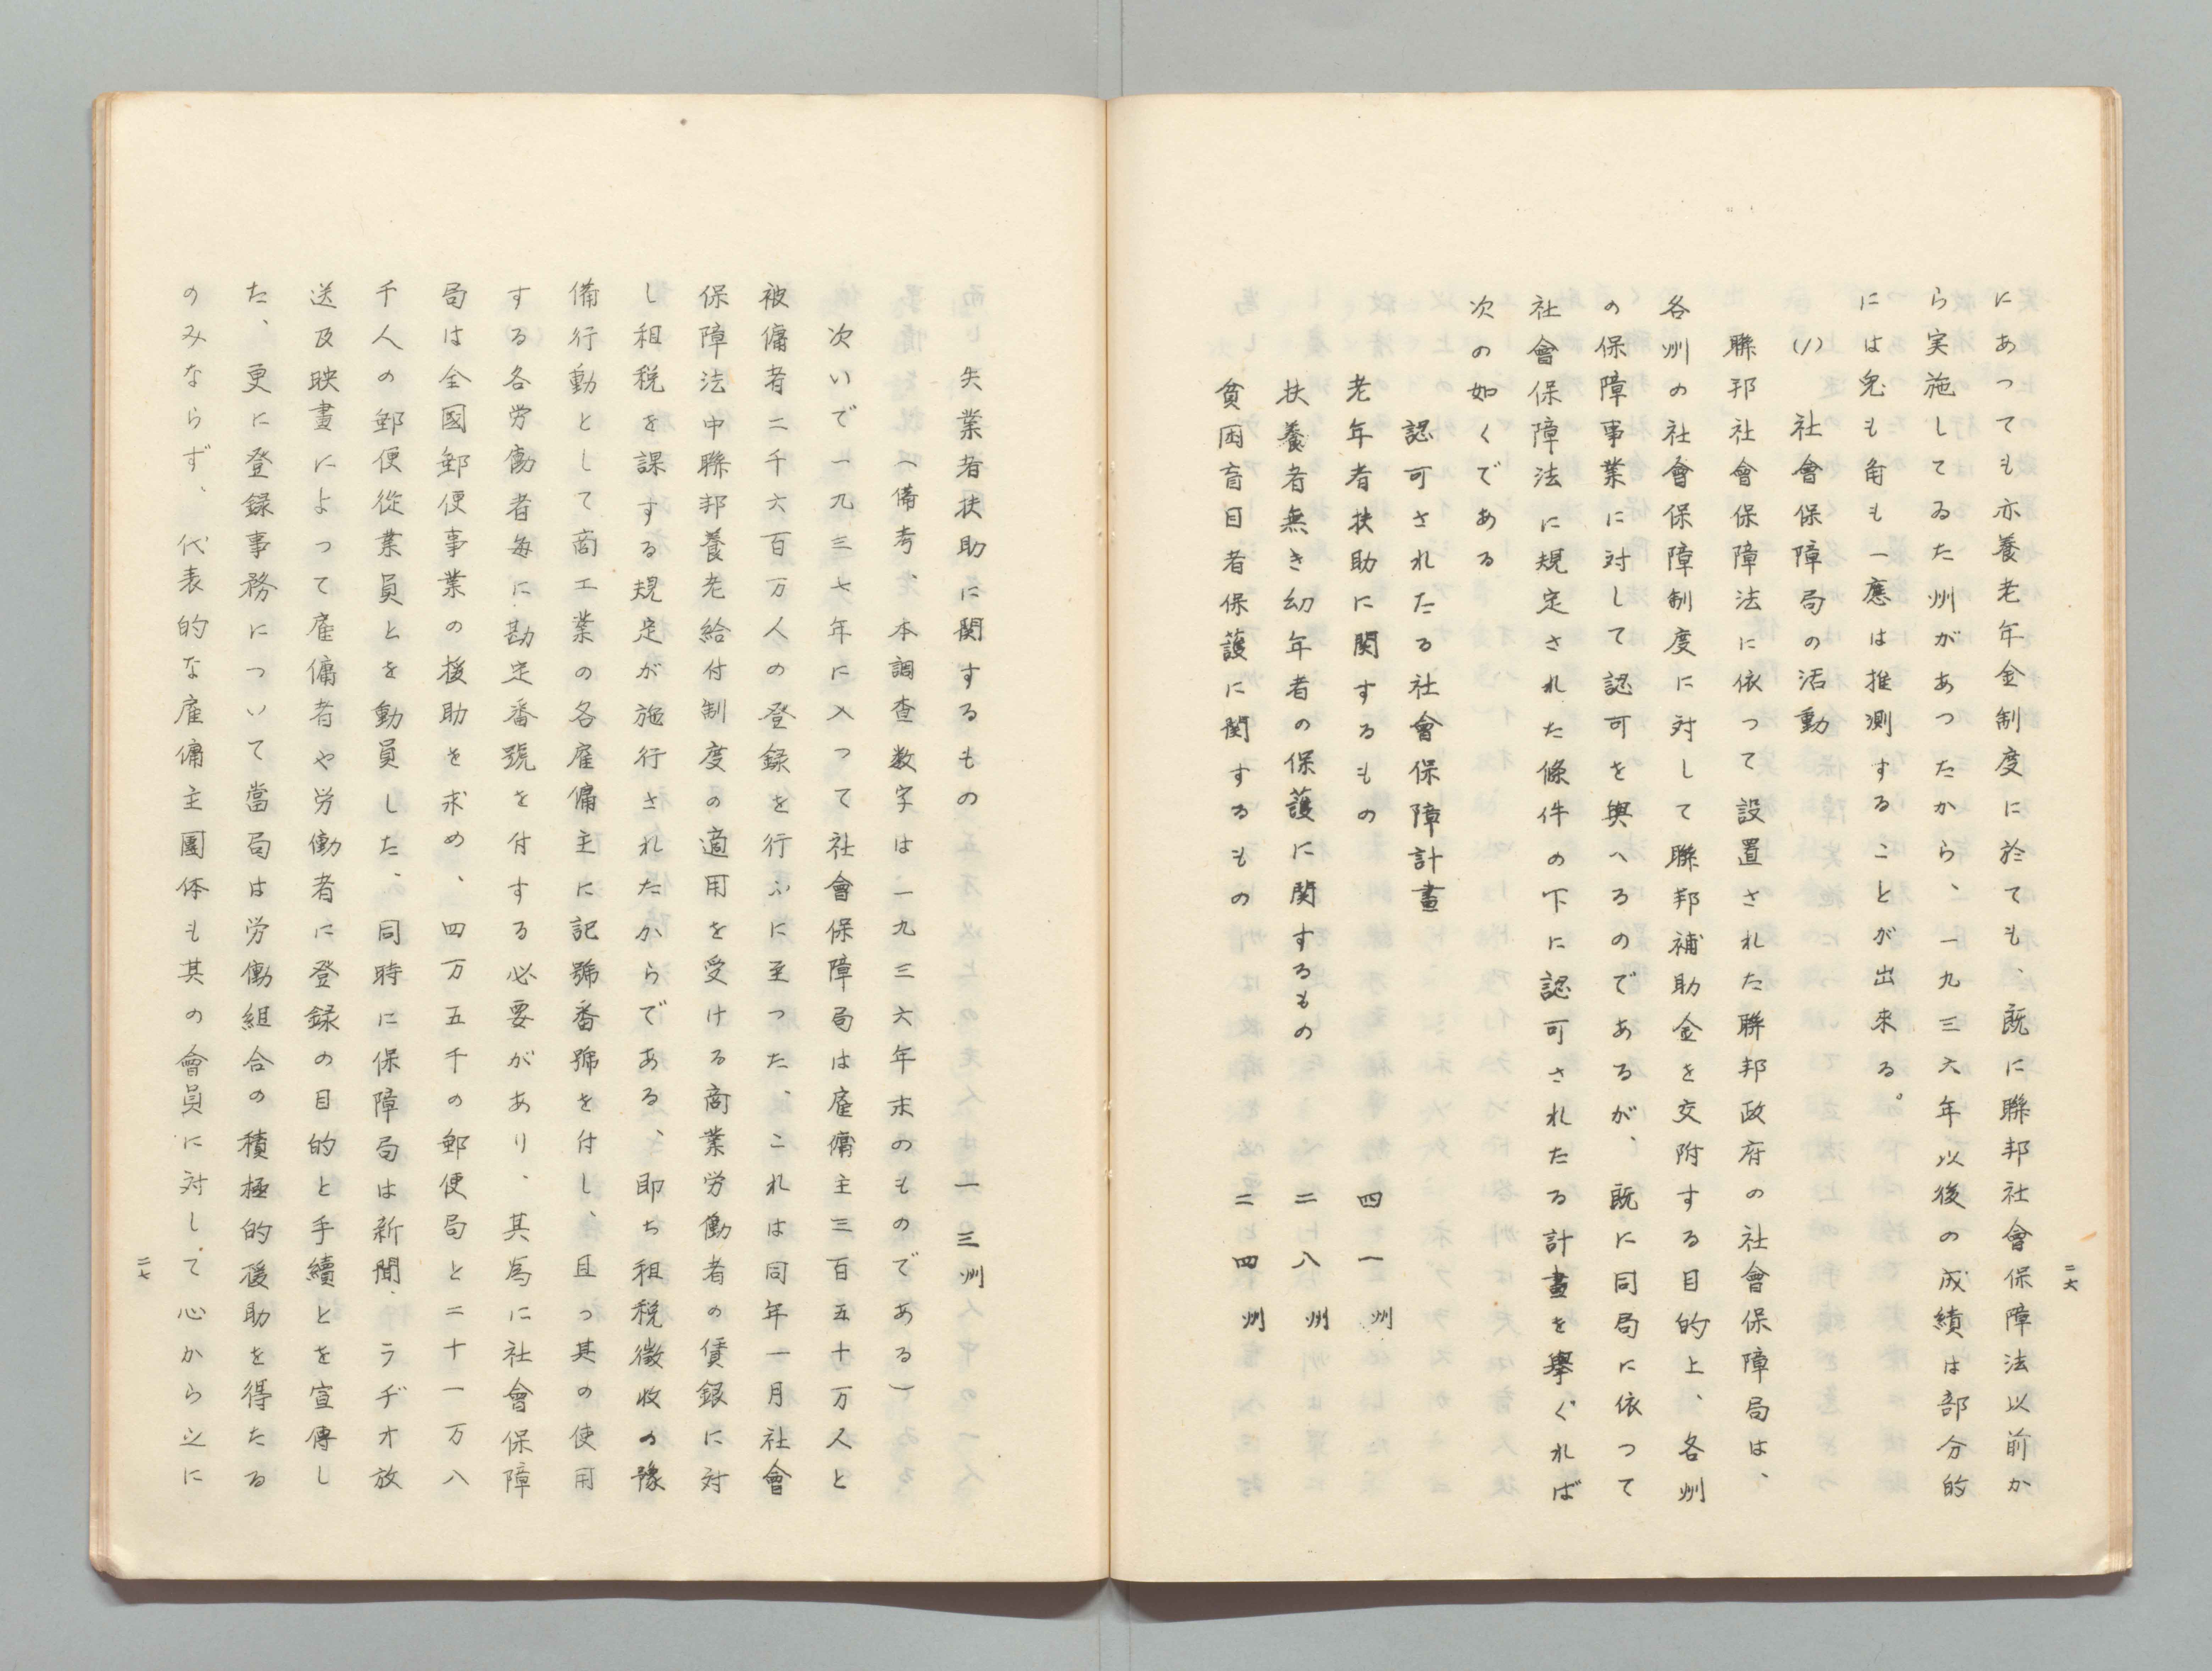 二六
にあつても亦養老年金制度に於ても、既に聯邦社會保障法以前か
ら実施してゐた州があつたから、一九三六年以後の成績は部分的
には兎も角も一應は推測することが出来る。
(1) 社會保障局の活動
聯邦社會保障法に依つて設置された聯邦政府の社會保障局は、
各州の社會保障制度に対して聯邦補助金を交附する目的上、各州
の保障事業に対して認可を與へるのであるが、既に同局に依つて
社會保障法に規定された條件の下に認可されたる計畫を擧ぐれば
次の如くである
認可されたる社會保障計畫
老年者扶助に関するもの 四一州
扶養者無き幼年者の保護に関するもの 二八州
貧困盲目者保護に関するもの 二四州
失業者扶助に関するもの 一三州
(備考、本調査数字は、一九三六年末のものである)
次いで一九三七年に入つて社會保障局は雇傭主三百五十万人と
被傭者二千六百万人の登録を行ふに至つた、これは同年一月社會
保障法中聯邦養老給付制度の適用を受ける商業労働者の賃銀に対
し租税を課する規定が施行されたからである、即ち租税徴収の豫
備行動として商工業の各雇傭主に記號番號を付し、且つ其の使用
する各労働者毎に勘定番號を付する必要があり、其爲に社會保障
局は全國郵便事業の援助を求め、四万五千の郵便局と二十一万八
千人の郵便從業員とを動員した、同時に保障局は新聞、ラヂオ放
送及映畫によつて雇傭者や労働者に登録の目的と手續とを宣傳し
た、更に登録事務について當局は労働組合の積極的援助を得たる
のみならず、代表的な雇傭主團体も其の會員に対して心から之に
二七